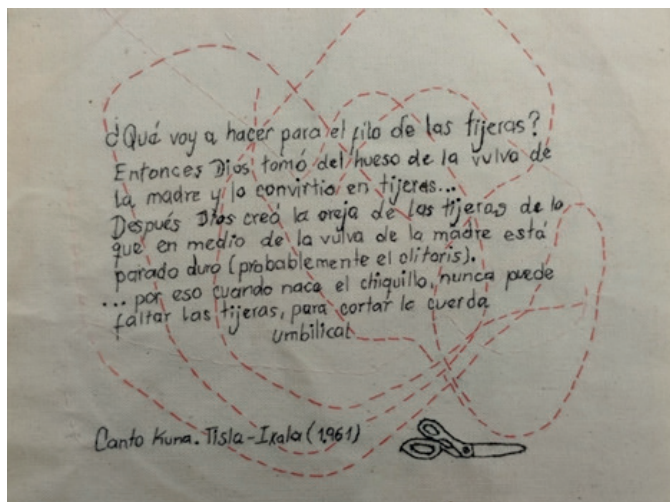 ¿Qué voy a hacer para el filo de las tijeras?
Entonces Dios tomó del hueso de la vulva de
la madre y lo convirtio en tijeras...
Después Dios creá la oreja de las tijeras de lo
que en medio de la vulva de la madre está
parado duro (probablemente el clitoris).
... por eso cuando nace el chiquillo, nunca puede
faltar las tijeras, para cortar la cuerda
umbilical
Canto Kuna. Tisla-Ikala (1961)